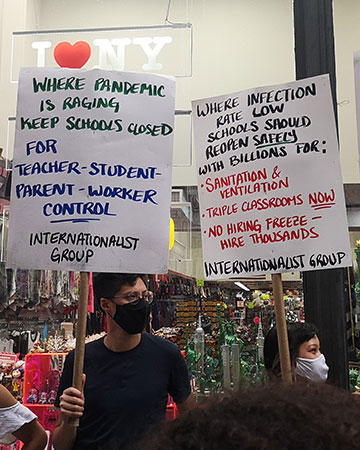 I NY
WHERE PANDEMIC
IS RAGING
KEEP SCHOOLS CLOSED
FOR
TEACHER-STUDENT-
PARENT-WORKER
CONTROL
INTERNATIONALIST
GROUP
WHERE INFECTION
RATE LOW
SCHOOLS SHOULD
REOPEN SAFELY
WITH BILLIONS FOR:
• SANITATION &
VENTILATION
• TRIPLE CLASSROOMS NOW
• NO HIRING FREEZE -
HIRE THOUSANDS
INTERNATIONALIST GROUP